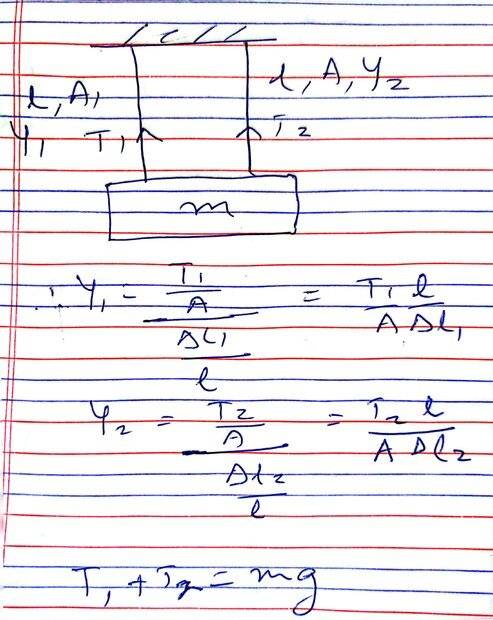 l, A, Y₂
l, A,
Y₁ T₁ T₂
m
∴ Y₁ = T₁/A / Δl₁/l = T₁/A l/Δl₁
Y₂ = T₂/A / Δl₂/l = T₂ l/A Δl₂
T₁ + T₂ = mg